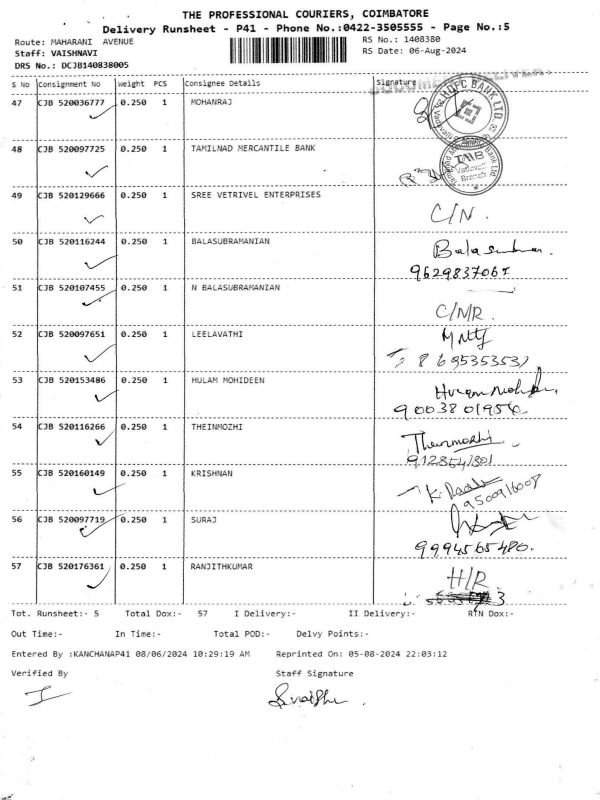 THE PROFESSIONAL COURIERS, COIMBATORE
Delivery Runsheet - P41 - Phone No.:0422-3505555 - Page No.:5
Route: MAHARANI AVENUE RS No.: 1408380
Staff: VAISHNAVI RS Date: 06-Aug-2024
DRS No.: DCJB140838005
S No Consignment No Weight PCS Consignee Details Signature
47 CJB 520036777 0.250 1 MOHANRAJ
HDFC BANK LTD.
48 CJB 520097725 0.250 1 TAMILNAD MERCANTILE BANK
TMB
Vadavalli
Branch
49 CJB 520129666 0.250 1 SREE VETRIVEL ENTERPRISES
C/N.
50 CJB 520116244 0.250 1 BALASUBRAMANIAN
9629837067
51 CJB 520107455 0.250 1 N BALASUBRAMANIAN
C/N/R.
52 CJB 520097651 0.250 1 LEELAVATHI
53 CJB 520153486 0.250 1 HULAM MOHIDEEN
54 CJB 520116266 0.250 1 THEINMOZHI
Theinmozhi
55 CJB 520160149 0.250 1 KRISHNAN
9500916008
56 CJB 520097719 0.250 1 SURAJ
9994565480.
57 CJB 520176361 0.250 1 RANJITHKUMAR
H/R
Tot. Runsheet:- 5 Total Dox:- 57 I Delivery:- II Delivery:- RTN Dox:-
Out Time:- In Time:- Total POD:- Delvy Points:-
Entered By :KANCHANAP41 08/06/2024 10:29:19 AM Reprinted On: 05-08-2024 22:03:12
Verified By Staff Signature